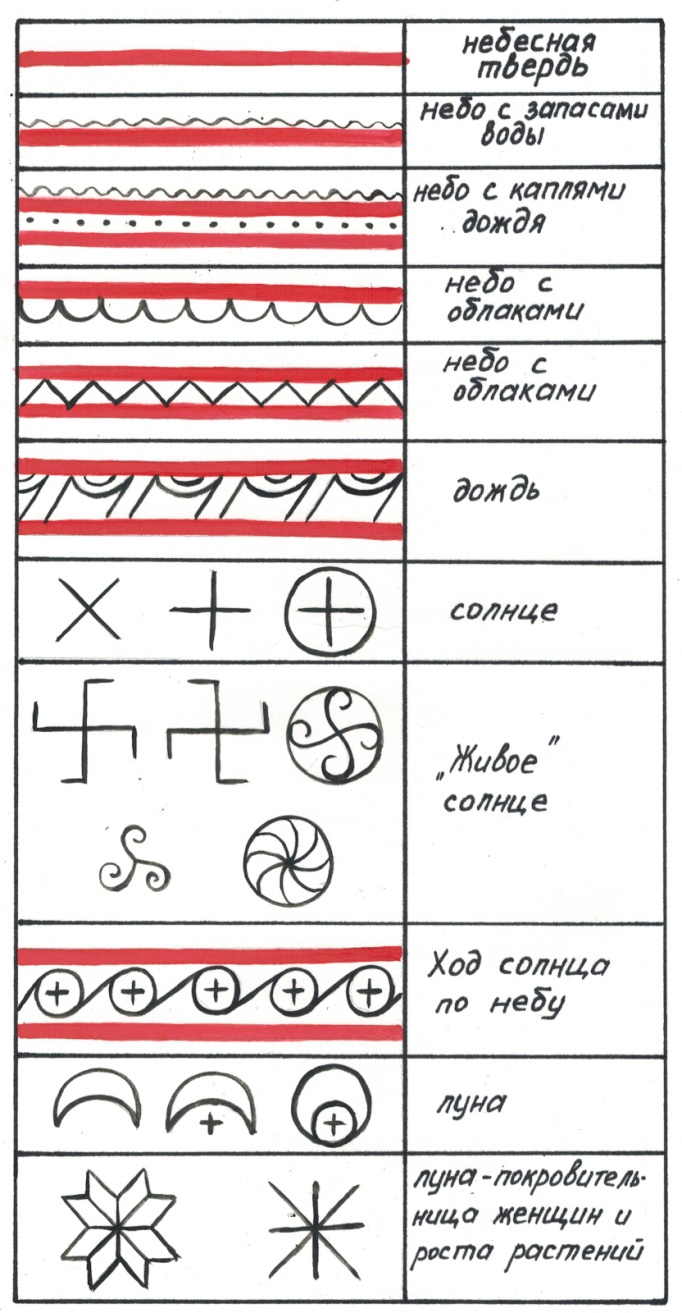 небесная
твердь
небо с запасами
воды
небо с каплями
дождя
небо с
облаками
небо с
облаками
дождь
солнце
„Живое”
солнце
Ход солнца
по небу
луна
луна-покровитель-
ница женщин и
роста растений